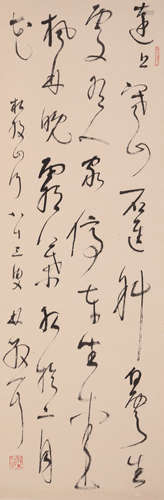 遠上寒山石逕斜白雲生
處有人家停車坐愛
楓林晚霜葉紅於二月
花 杜牧山行 八十三叟 林散耳